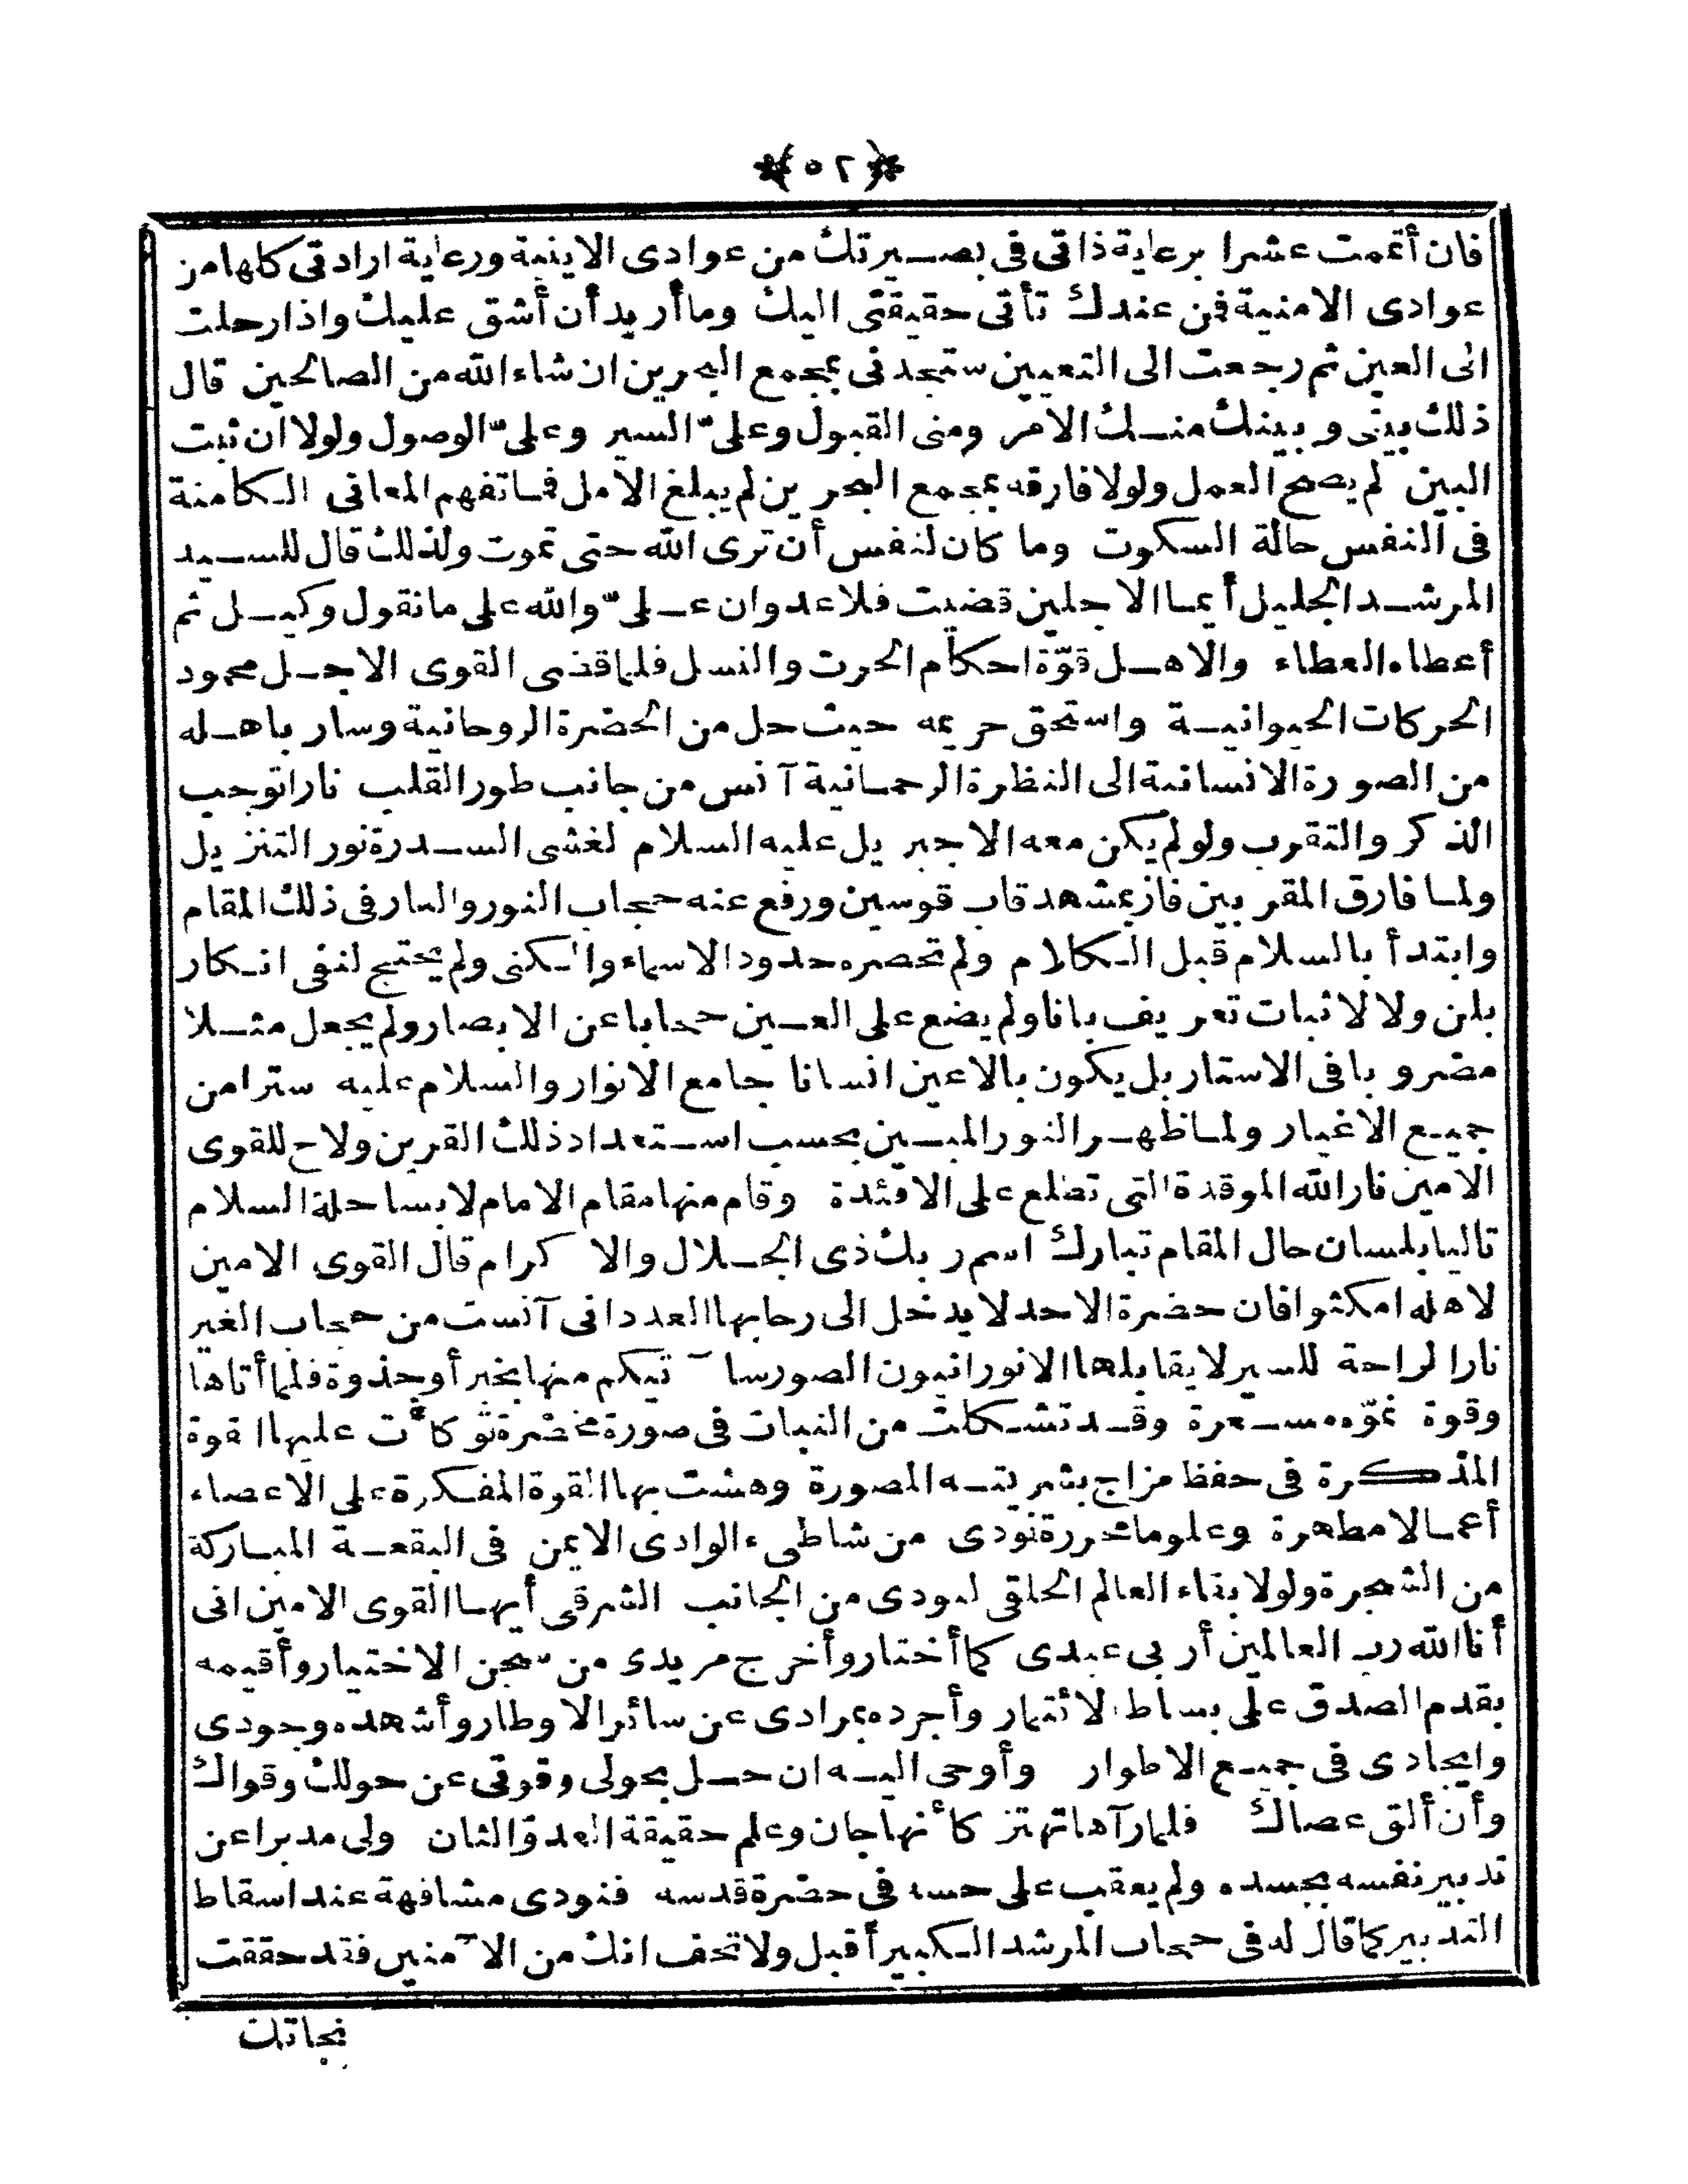 ﴿٥٢﴾
فان أتممت عشرا برعاية ذاتى فى بصيرتك من عوادى الاينية ورعاية ارادتى كلها من
عوادى الامنية فمن عندك تأتى حقيقتى اليك وما أريد أن أشق عليك واذا رحلت
الى العين ثم رجعت الى التعيين ستجدنى بمجمع البحرين ان شاء الله من الصالحين قال
ذلك بينى وبينك منك الامر ومنى القبول وعلىّ السير وعلىّ الوصول ولولا ان ثبت
البين لم يصح العمل ولولا فارقه بمجمع البحرين لم يبلغ الامل فما تفهم المعانى الكامنة
فى النفس حالة السكوت وما كان لنفس أن ترى الله حتى تموت ولذلك قال للسيد
المرشد الجليل أيما الاجلين قضيت فلا عدوان علىّ والله على ما نقول وكيل ثم
أعطاه العطاء والاهل قوّة احكام الحرث والنسل فلما قضى القوى الاجل محمود
الحركات الحيوانية واستحق حريمه حيث حل من الحضرة الروحانية وسار باهله
من الصورة الانسانية الى النظرة الرحمانية آنس من جانب طور القلب نارا توجب
الذكر والتقرب ولو لم يكن معه الا جبريل عليه السلام لغشى السدرة نور التنزيل
ولما فارق المقربين فاز بمشهد قاب قوسين ورفع عنه حجاب النور والنار فى ذلك المقام
وابتدأ بالسلام قبل الكلام ولم تحصره حدود الاسماء والكنى ولم يحتج لنفى انكار
بلن ولا لاثبات تعريف بانا ولم يضع على العين حجابا عن الابصار ولم يجعل مثلا
مضروبا فى الاستار بل يكون بالاعين انسانا جامع الانوار والسلام عليه سترا من
جميع الاغيار ولما ظهر النور المبين بحسب استعداد ذلك القرين ولاح للقوى
الامين نار الله الموقدة التى تطلع على الافئدة وقام منها مقام الامام لابسا حلة السلام
تاليا بلسان حال المقام تبارك اسم ربك ذى الجلال والاكرام قال القوى الامين
لاهله امكثوا فان حضرة الاحد لا يدخل الى رحابها العدد انى آنست من حجاب الغير
نارا لراحة للسير لا يقابلها الا نورانيون الصور سآتيكم منها بخبر أو جذوة فلما أتاها
وقوة نموّه مسعرة وقد تشكلت من النبات فى صورة مخضرة توكأت عليها القوة
المذكرة فى حفظ مزاج بشريته المصورة وهشت بها القوة المفكرة على الاعصاء
أعمالا مطهرة وعلوما محررة نودى من شاطىء الوادى الايمن فى البقعة المباركة
من الشجرة ولولا بقاء العالم الخلقى لنودى من الجانب الشرقى أيها القوى الامين انى
أنا الله رب العالمين أربى عبدى كما أختار وأخرج مريدى من سجن الاختيار وأقيمه
بقدم الصدق على بساط الائتمار وأجرده بمرادى عن سائر الاوطار وأشهده وجودى
وايجادى فى جميع الاطوار وأوحى اليه ان حل بحولى وقوتى عن حولك وقواك
وأن ألق عصاك فلما رآها تهتز كأنها جان وعلم حقيقة العدوّ الثان ولى مدبرا عن
تدبير نفسه بجسده ولم يعقب على حسه فى حضرة قدسه فنودى مشافهة عند اسقاط
التدبير كما قال له فى حجاب المرشد الكبير أقبل ولا تخف انك من الآمنين فقد حققت
نجاتك